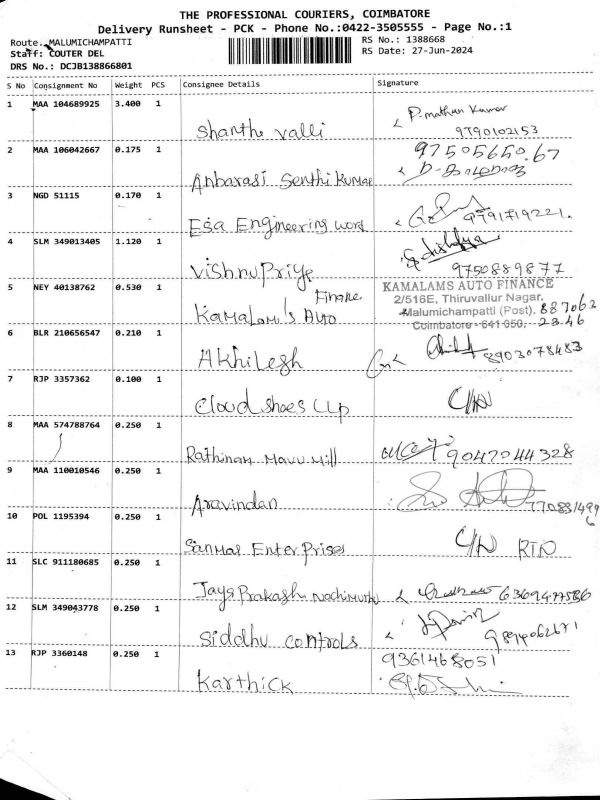 THE PROFESSIONAL COURIERS, COIMBATORE
Delivery Runsheet - PCK - Phone No.:0422-3505555 - Page No.:1
Route. MALUMICHAMPATTI
RS No.: 1388668
Staff: COUTER DEL
RS Date: 27-Jun-2024
DRS No.: DCJB138866801
S No Consignment No Weight PCS Consignee Details Signature
1 MAA 104689925 3.400 1
P. mathan kumar
Shantha valli
9790102153
2 MAA 106042667 0.175 1
9750565067
Anbarasi Senthi Kumar
3 NGD 51115 0.170 1
Esa Engineering work
9791719221.
4 SLM 349013405 1.120 1
Vishnu Priya
9750889877
5 NEY 40138762 0.530 1
KAMALAMS AUTO FINANCE
2/516E, Thiruvallur Nagar,
Finance
Kamalam's Auto
Malumichampatti (Post), 887063
Coimbatore - 641 050. 2346
6 BLR 210656547 0.210 1
Akhilesh
8903078483
7 RJP 3357362 0.100 1
Cloud shoes LLP
8 MAA 574788764 0.250 1
Rathinam Mavu Mill
9047044328
9 MAA 110010546 0.250 1
Aravindan
7708314996
10 POL 1195394 0.250 1
Sanmar Enterprises
RTO
11 SLC 911180685 0.250 1
Jaya Prakash Nachimuthu
6369477586
12 SLM 349043778 0.250 1
Siddhu controls
9894062671
13 RJP 3360148 0.250 1
9361468051
Karthick